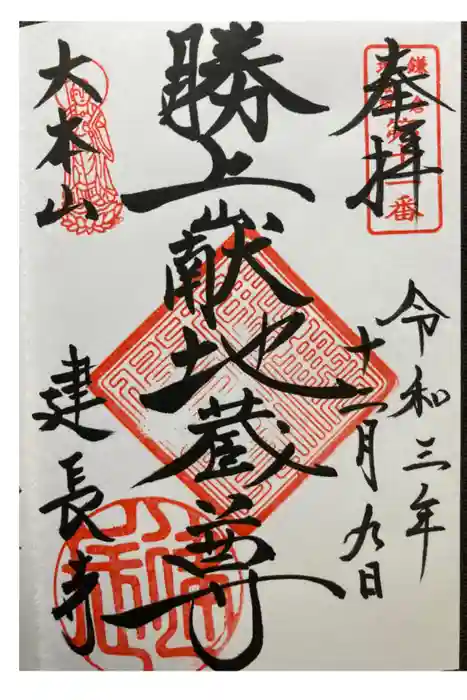 奉拝
鎌倉
番
令和三年
十二月九日
勝上巘地蔵尊
大本山
建長寺